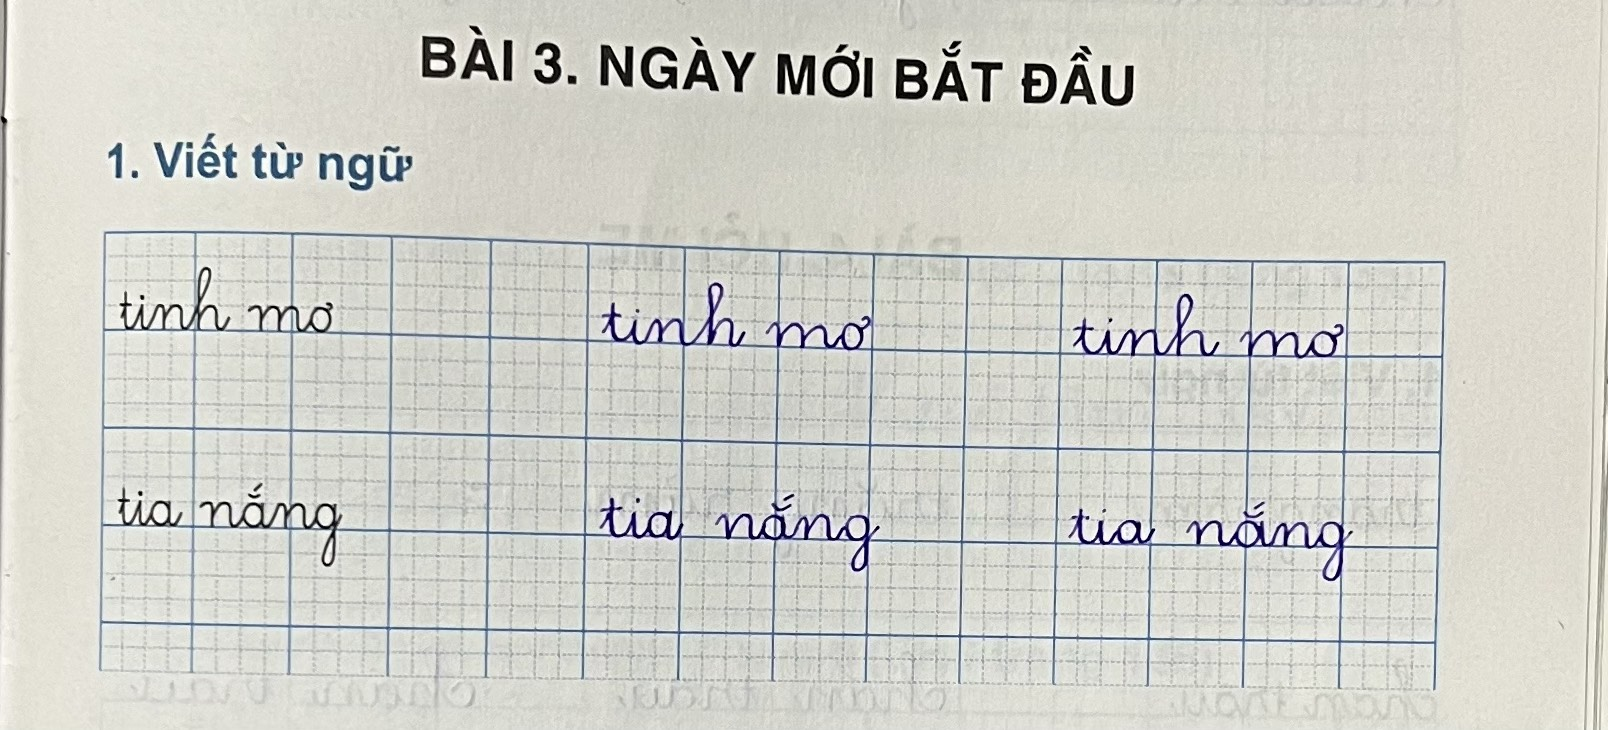 BÀI 3. NGÀY MỚI BẮT ĐẦU
1. Viết từ ngữ
tinh mơ tinh mơ tinh mơ
tia nắng tia nắng tia nắng